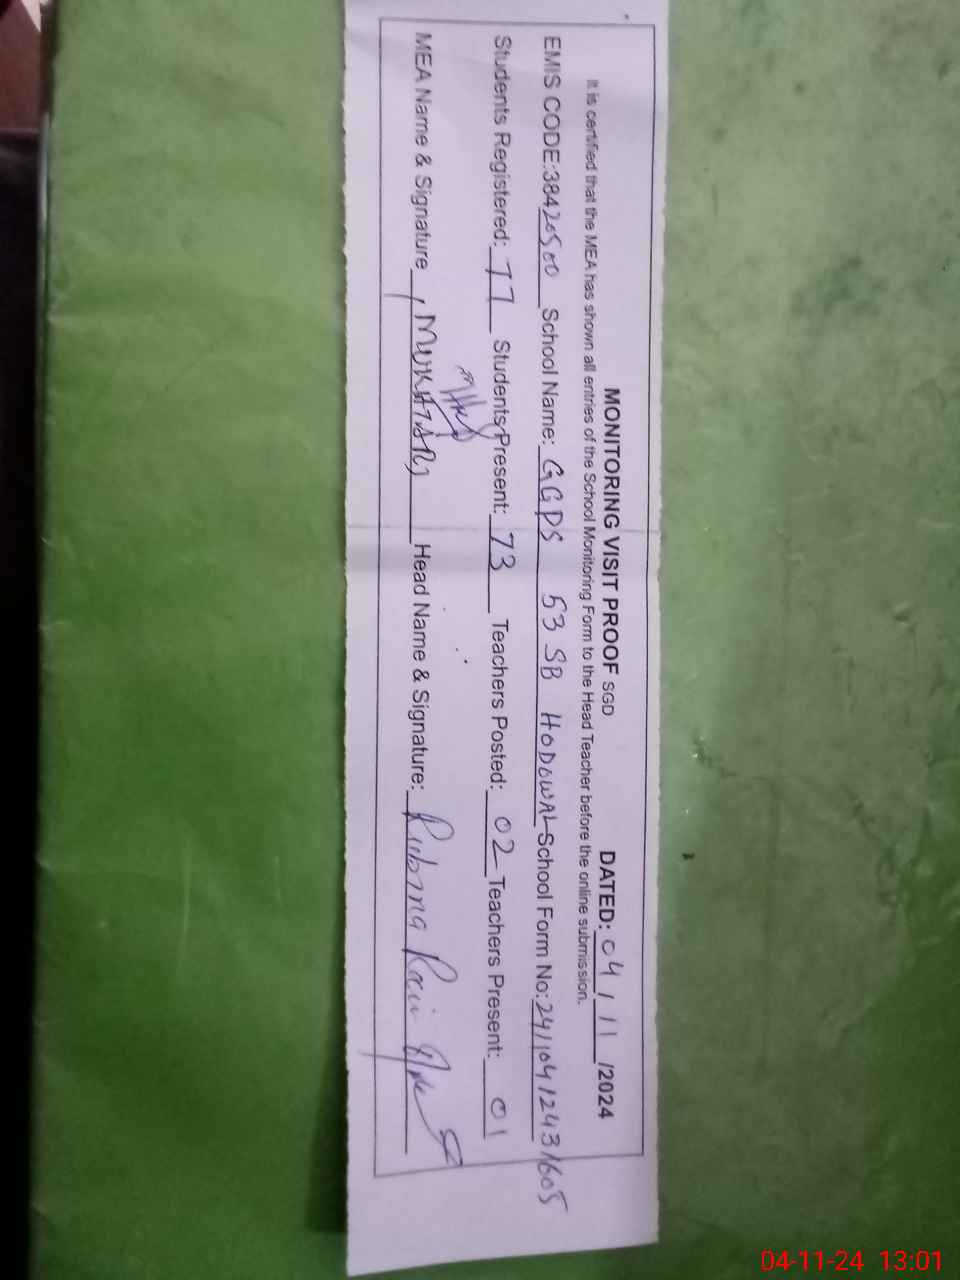 MONITORING VISIT PROOF SGD DATED: 04 / 11 /2024
It is certified that the MEA has shown all entries of the School Monitoring Form to the Head Teacher before the online submission.
EMIS CODE:38420500 School Name: GGPS 53 SB HODOWAL School Form No:
Students Registered: 77 Students Present: 73 Teachers Posted: 02 Teachers Present: 01
MEA Name & Signature MUKHTAR Head Name & Signature: Rubina
04-11-24 13:01